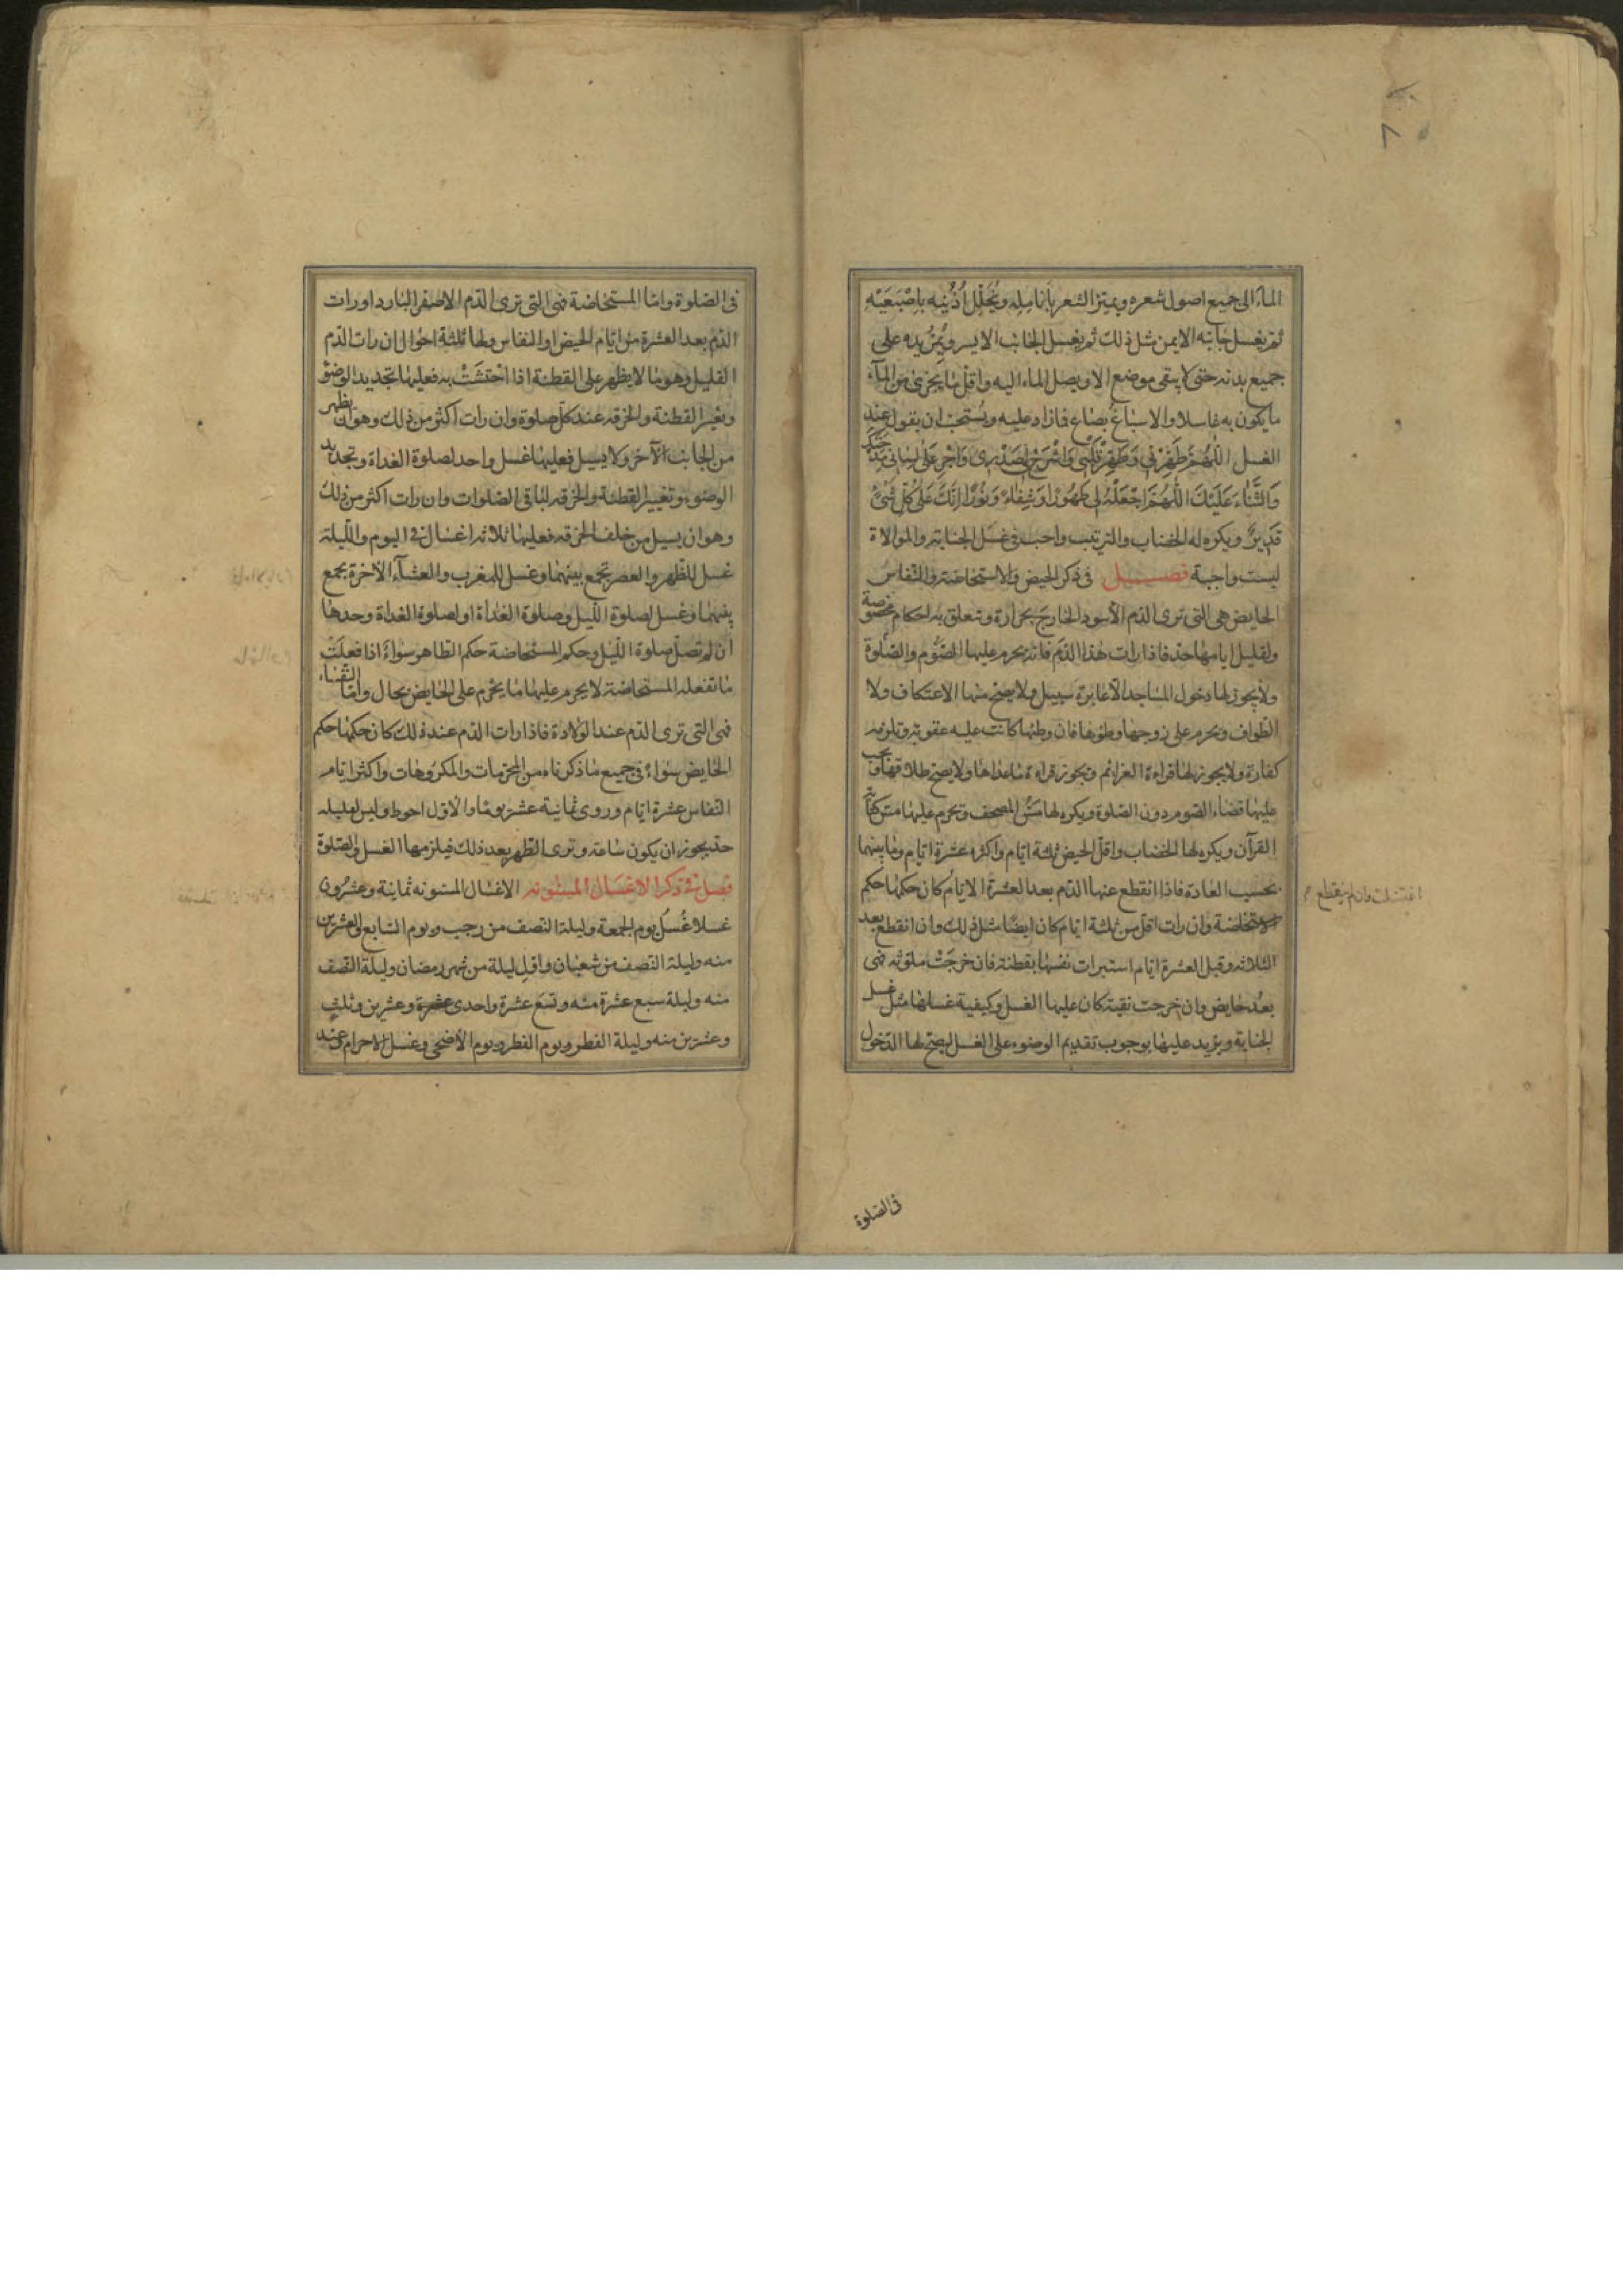 الماء الى جميع اصول شعره ويميّز الشعر بأنامِلِه ويُخَلِّل اُذُنَيه باِصْبَعَيْهِ
ثم يغسل جانبه الايمن مثل ذلك ثم يغسل الجانب الايسر ويُمِرُّ يده على
جميع بدنه حتى لا يبقى موضع الا ويصل الماء اليه واقلّ ما يجزى من المآء
ما يكون به غاسلا والاسباغُ بصاع فما زاد عليه ويُستحبّ ان يقول عند
الغسل اَللّهُمَّ طَهِّرْنى وَطَهِّرْ قَلْبى وَاشْرَحْ لى صَدْرى وَاَجْرِ عَلى لِسانى مِدْحَتَكَ
وَالثَّناءَ عَلَيْكَ اَللّهُمَّ اجْعَلْهُ لى طَهُورًا وَشِفاءً وَنُورًا اِنَّكَ عَلى كُلِّ شَىْءٍ
قَدِيرٌ ويكره له الخضاب والترتيب واجب فى غسل الجنابة والموالاة
ليست واجبة فصل فى ذكر الحيض والاستحاضة والنفاس
الحايض هى التى ترى الدّم الأسود الخارج بحرارة وتتعلق به احكام مخصوصة
ولقليل ايامها حدّ فاذا رات هذا الدّم فانه يحرم عليها الصّوم والصّلوة
ولا يجوز لها دخول المساجد الّا عابرة سبيل ولا يصحّ منها الاعتكاف ولا
الطواف ويحرم على زوجها وطؤها فان وطئها كانت عليه عقوبة وتلزمه
كفارة ولا يجوز لها قراءة العزائم ويجوز قراءة ماعداها ولا يصحّ طلاقها ويجب
عليها قضاء الصّوم دون الصّلوة ويكره لها مسّ المصحف ويحرم عليها مسّ كتابة
القرآن ويكره لها الخضاب واقلّ الحيض ثلثة ايّام واكثره عشرة ايّام وما بينهما
بحسب العادة فاذا انقطع عنها الدّم بعد العشرة الايّام كان حكمها حكم
الاستحاضة وان رات اقلّ من ثلثة ايّام كان ايضًا مثل ذلك وان انقطع بعد
الثلاثة وقبل العشرة ايّام استبرات نفسها بقطنة فان خرجَتْ ملوّثه فهى
بعدُ حايض وان خرجت نقيّة كان عليها الغسل وكيفية غسلها مثل غسل
الجنابة ويزيد عليها بوجوب تقديم الوضوء على الغسل ليصحّ لها الدّخول
اغتسلت وان لم ينقطع
فى الصّلوة
فى الصّلوة وامّا المستحاضة فهى التى ترى الدّم الاصفر البارد او رات
الدّم بعد العشرة من ايّام الحيض او النفاس ولها ثلثة احوال ان رات الدّم
القليل وهو ما لا يظهر على القطنة اذا احْتَشَتْ به فعليها تجديد الوضوء
وتغيير القطنة والخرقه عند كلّ صلوة وان رات اكثر من ذلك وهو ان يظهر
من الجانب الآخر ولا يسيل فعليها غسل واحد لصلوة الغداة وتجديد
الوضوء وتغيير القطنة والخرقه لباقى الصّلوات وان رات اكثر من ذلك
وهو ان يسيل من خلف الخرقه فعليها ثلاثه اغسال فى اليوم واللّيلة
غسل للظهر والعصر تجمع بينهما وغسل للمغرب والعشآء الآخرة تجمع
بينهما وغسل لصلوة اللّيل وصلوة الغداة او لصلوة الغداة وحدها
ان لم تصلّ صلوة اللّيل وحكم المستحاضة حكم الطاهر سواء اذا فعلَتْ
ما تفعله المستحاضة لا يحرم عليها ما يحرم على الحايض بحال وامّا النّفساء
فهى التى ترى الدّم عند الولادة فاذا رات الدّم عند ذلك كان حكمها حكم
الحايض سواءً فى جميع ما ذكرناه من المحرّمات والمكروهات واكثر ايّام
النّفاس عشرة ايّام وروى ثمانية عشر يومًا والاوّل احوط وليس لقليله
حد يجوز ان يكون ساعة وترى الطّهر بعد ذلك فيلزمها الغسل والصّلوة
فصل فى ذكر الاغسال المسنونه الاغسال المسنونه ثمانية وعشرون
غسلا غُسلُ يوم الجمعة وليلة النّصف من رجب ويوم السّابع والعشرين
منه وليلة النّصف من شعبان واوّل ليلة من شهر رمضان وليلة النّصف
منه وليلة سبع عشرة منه وتسع عشرة واحدى وعشرين وثلث
وعشرين منه وليلة الفطر ويوم الفطر ويوم الاضحى وغسل الاحرام وعند